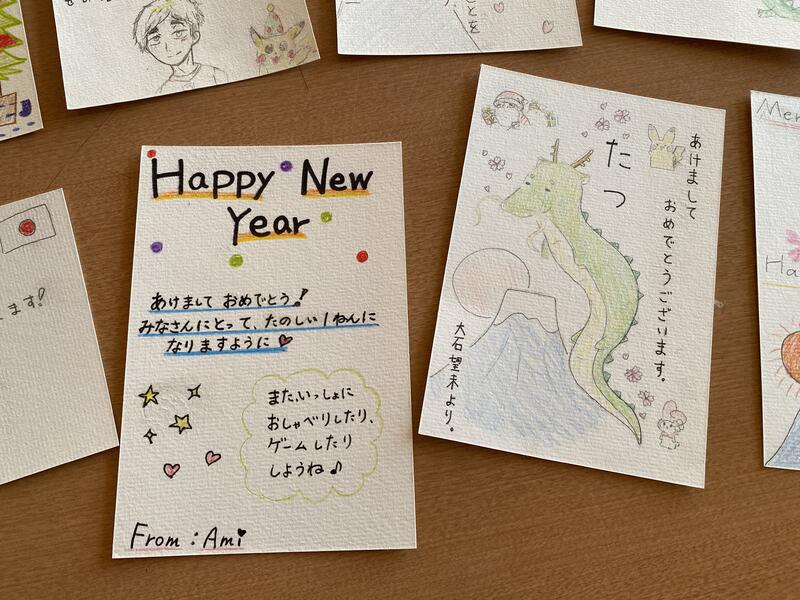 Happy New
Year
あけまして おめでとう!
みなさんにとって、たのしい1ねんに
なりますように
また、いっしょに
おしゃべりしたり、
ゲームしたり
しようね♪
From : Ami
あけまして
おめでとうございます。
たつ
大石 望未より。
ます!
ことを
Mer
Ha